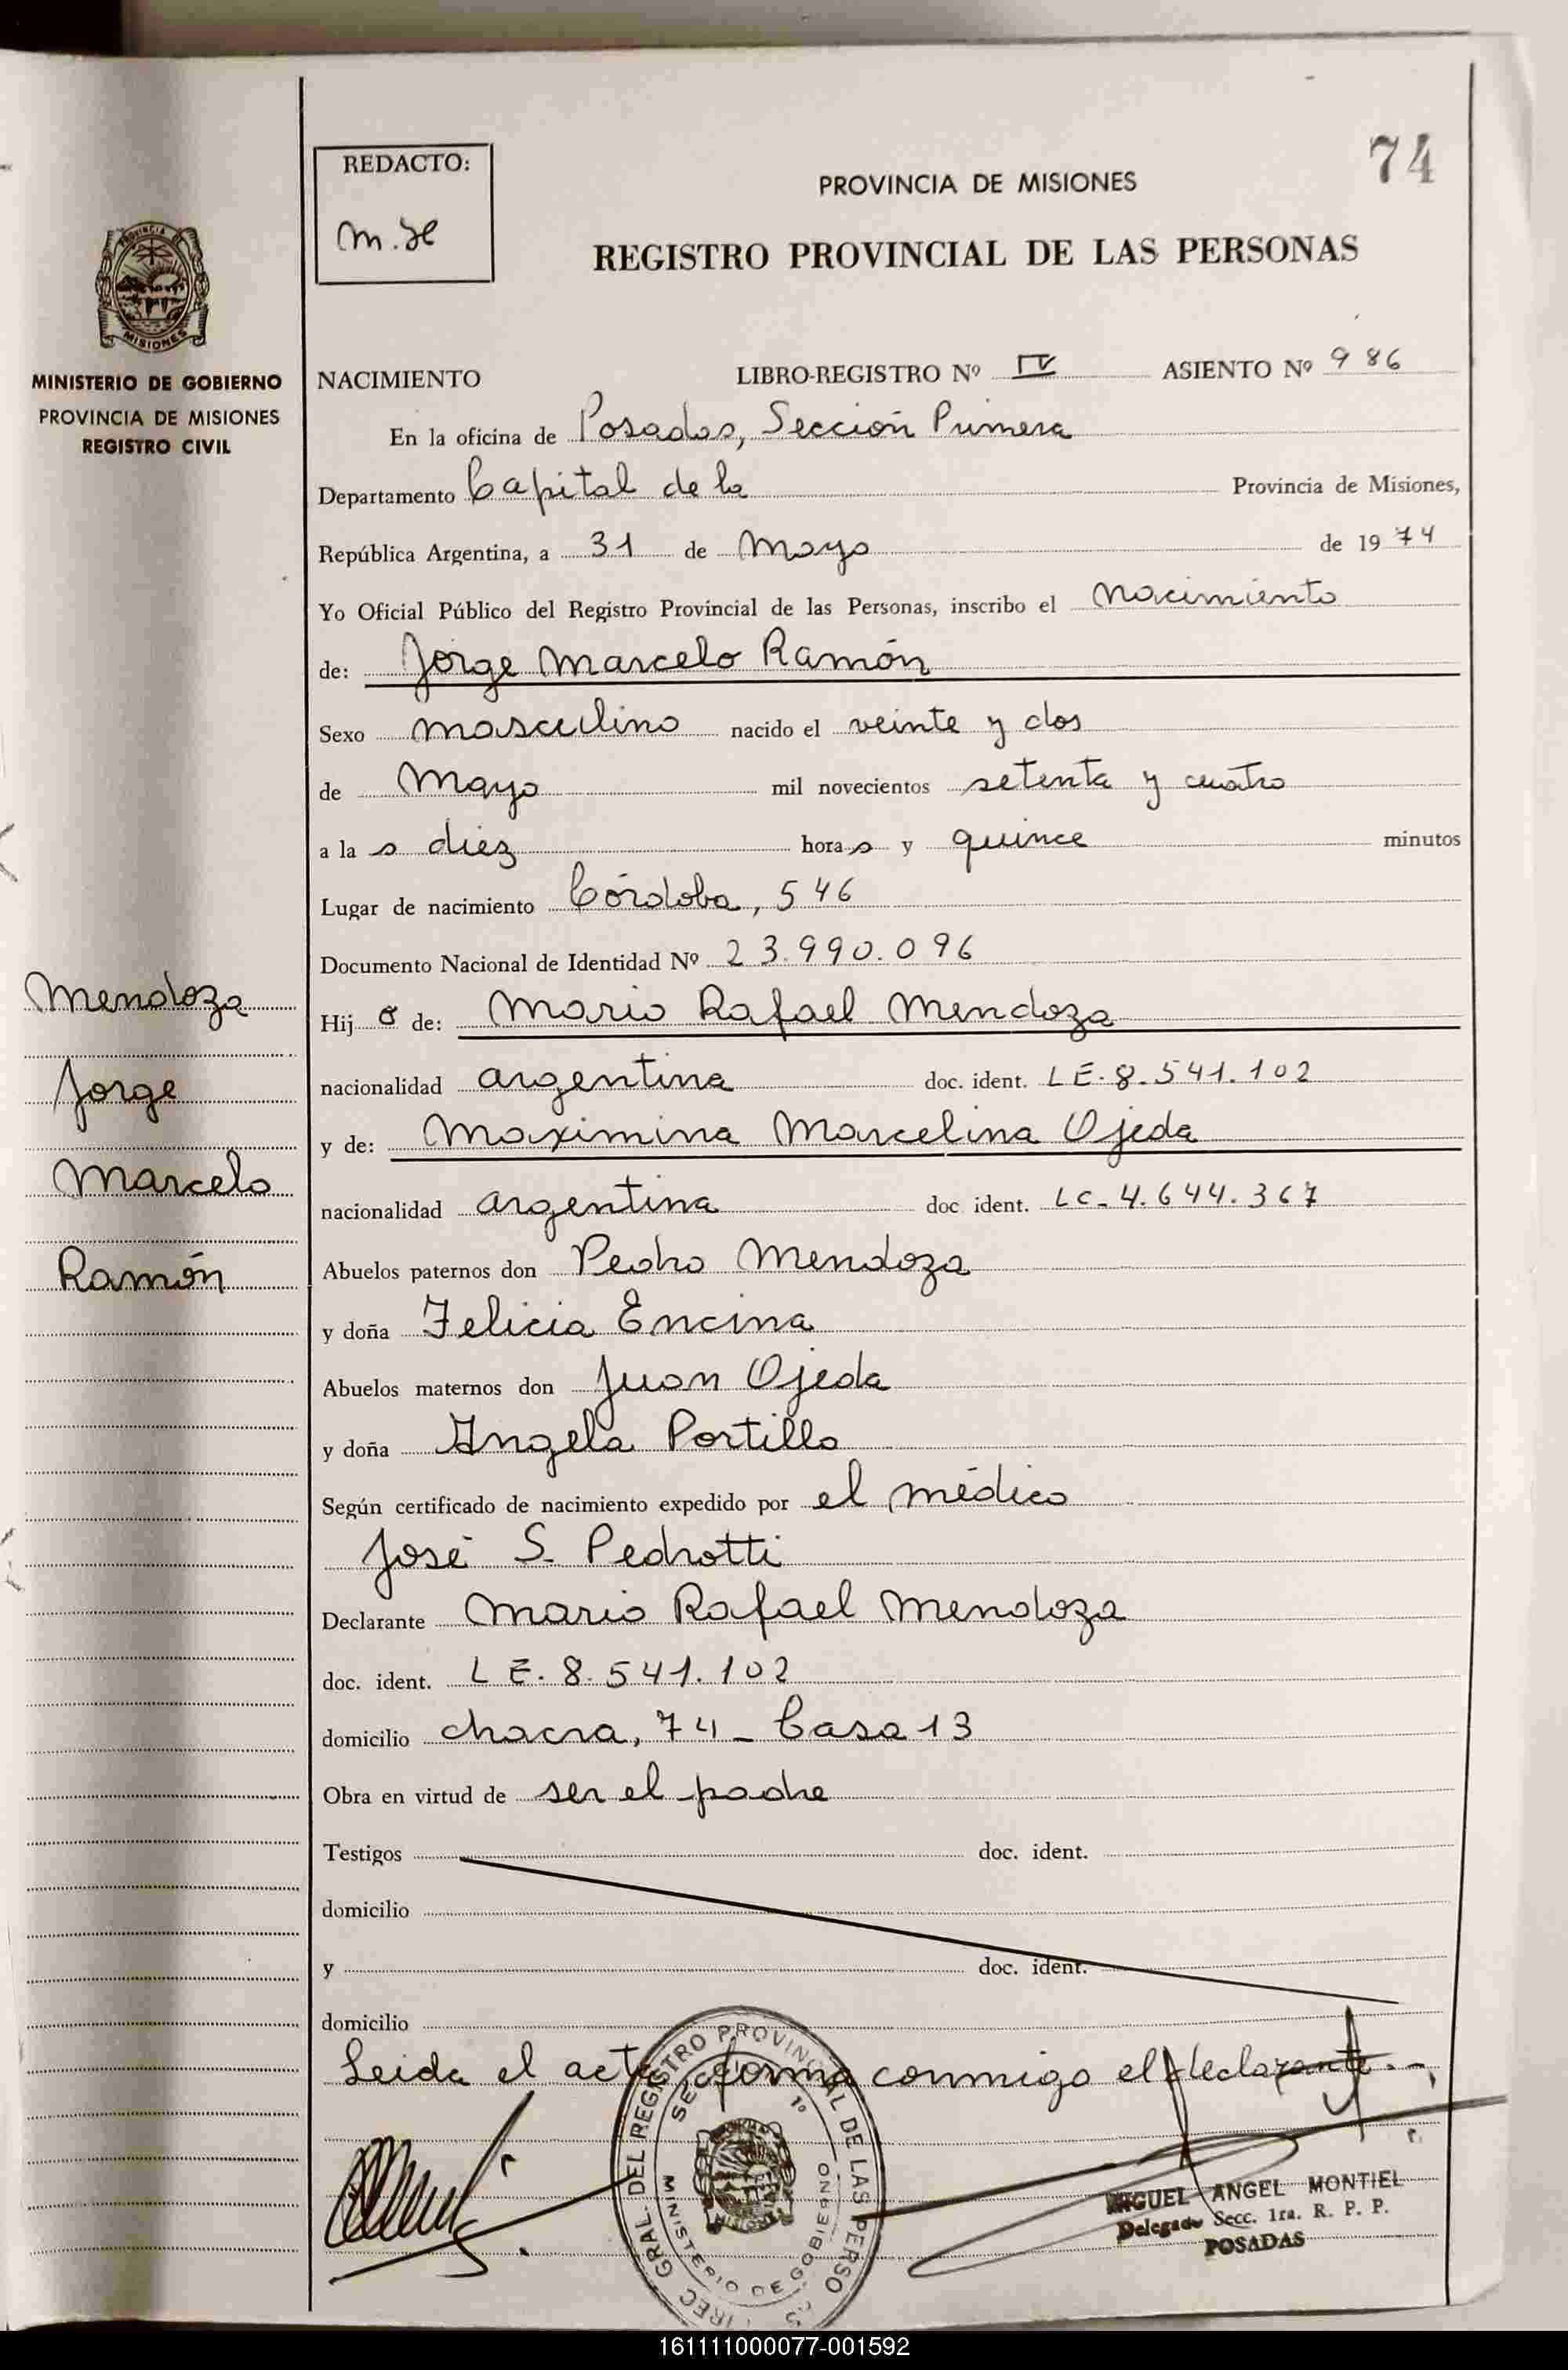 74
REDACTO:
m.
PROVINCIA DE MISIONES
REGISTRO PROVINCIAL DE LAS PERSONAS
PROVINCIA DE
MISIONES
MINISTERIO DE GOBIERNO
PROVINCIA DE MISIONES
REGISTRO CIVIL
NACIMIENTO LIBRO-REGISTRO Nº IV ASIENTO Nº 986
En la oficina de Posadas, Sección Primera
Departamento Capital de la Provincia de Misiones,
República Argentina, a 31 de Mayo de 1974
Yo Oficial Público del Registro Provincial de las Personas, inscribo el Nacimiento
de: Jorge Marcelo Ramón
Sexo masculino nacido el veinte y dos
de Mayo mil novecientos setenta y cuatro
a la s diez hora s y quince minutos
Lugar de nacimiento Córdoba, 546
Documento Nacional de Identidad Nº 23.990.096
Hij o de: Mario Rafael Mendoza
nacionalidad argentina doc. ident. LE. 8.541.102
y de: Maximina Marcelina Ojeda
nacionalidad argentina doc ident. LC- 4.644.367
Abuelos paternos don Pedro Mendoza
y doña Felicia Encina
Abuelos maternos don Juan Ojeda
y doña Angela Portillo
Según certificado de nacimiento expedido por el médico
José S. Pedrotti
Declarante Mario Rafael Mendoza
doc. ident. LE. 8.541.102
domicilio chacra, 74 - Casa 13
Obra en virtud de ser el padre
Testigos doc. ident.
domicilio
y doc. ident.
domicilio
Leida el acta, firma conmigo el declarante.-
Mendoza
Jorge
Marcelo
Ramón
DIREC GRAL. DEL REGISTRO PROVINCIAL DE LAS PERSO
1º
MINISTERIO DE GOBIERNO
MISIONES
MIGUEL ANGEL MONTIEL
Delegado Secc. 1ra. R. P. P.
POSADAS
161111000077-001592